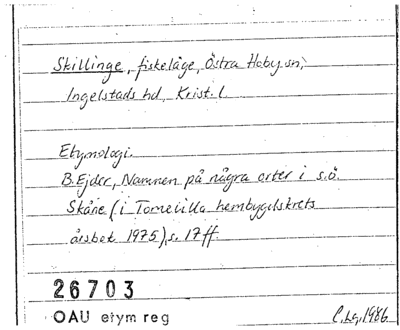 Skillinge, fiskeläge, Östra Hoby sn,
Ingelstads hd, Krist. l.
Etymologi.
B. Ejder, Namnen på några orter i s.ö.
Skåne (i Tomelilla hembygdskrets
årsbok 1975), s. 17 ff.
26703
OAU etym reg
1986